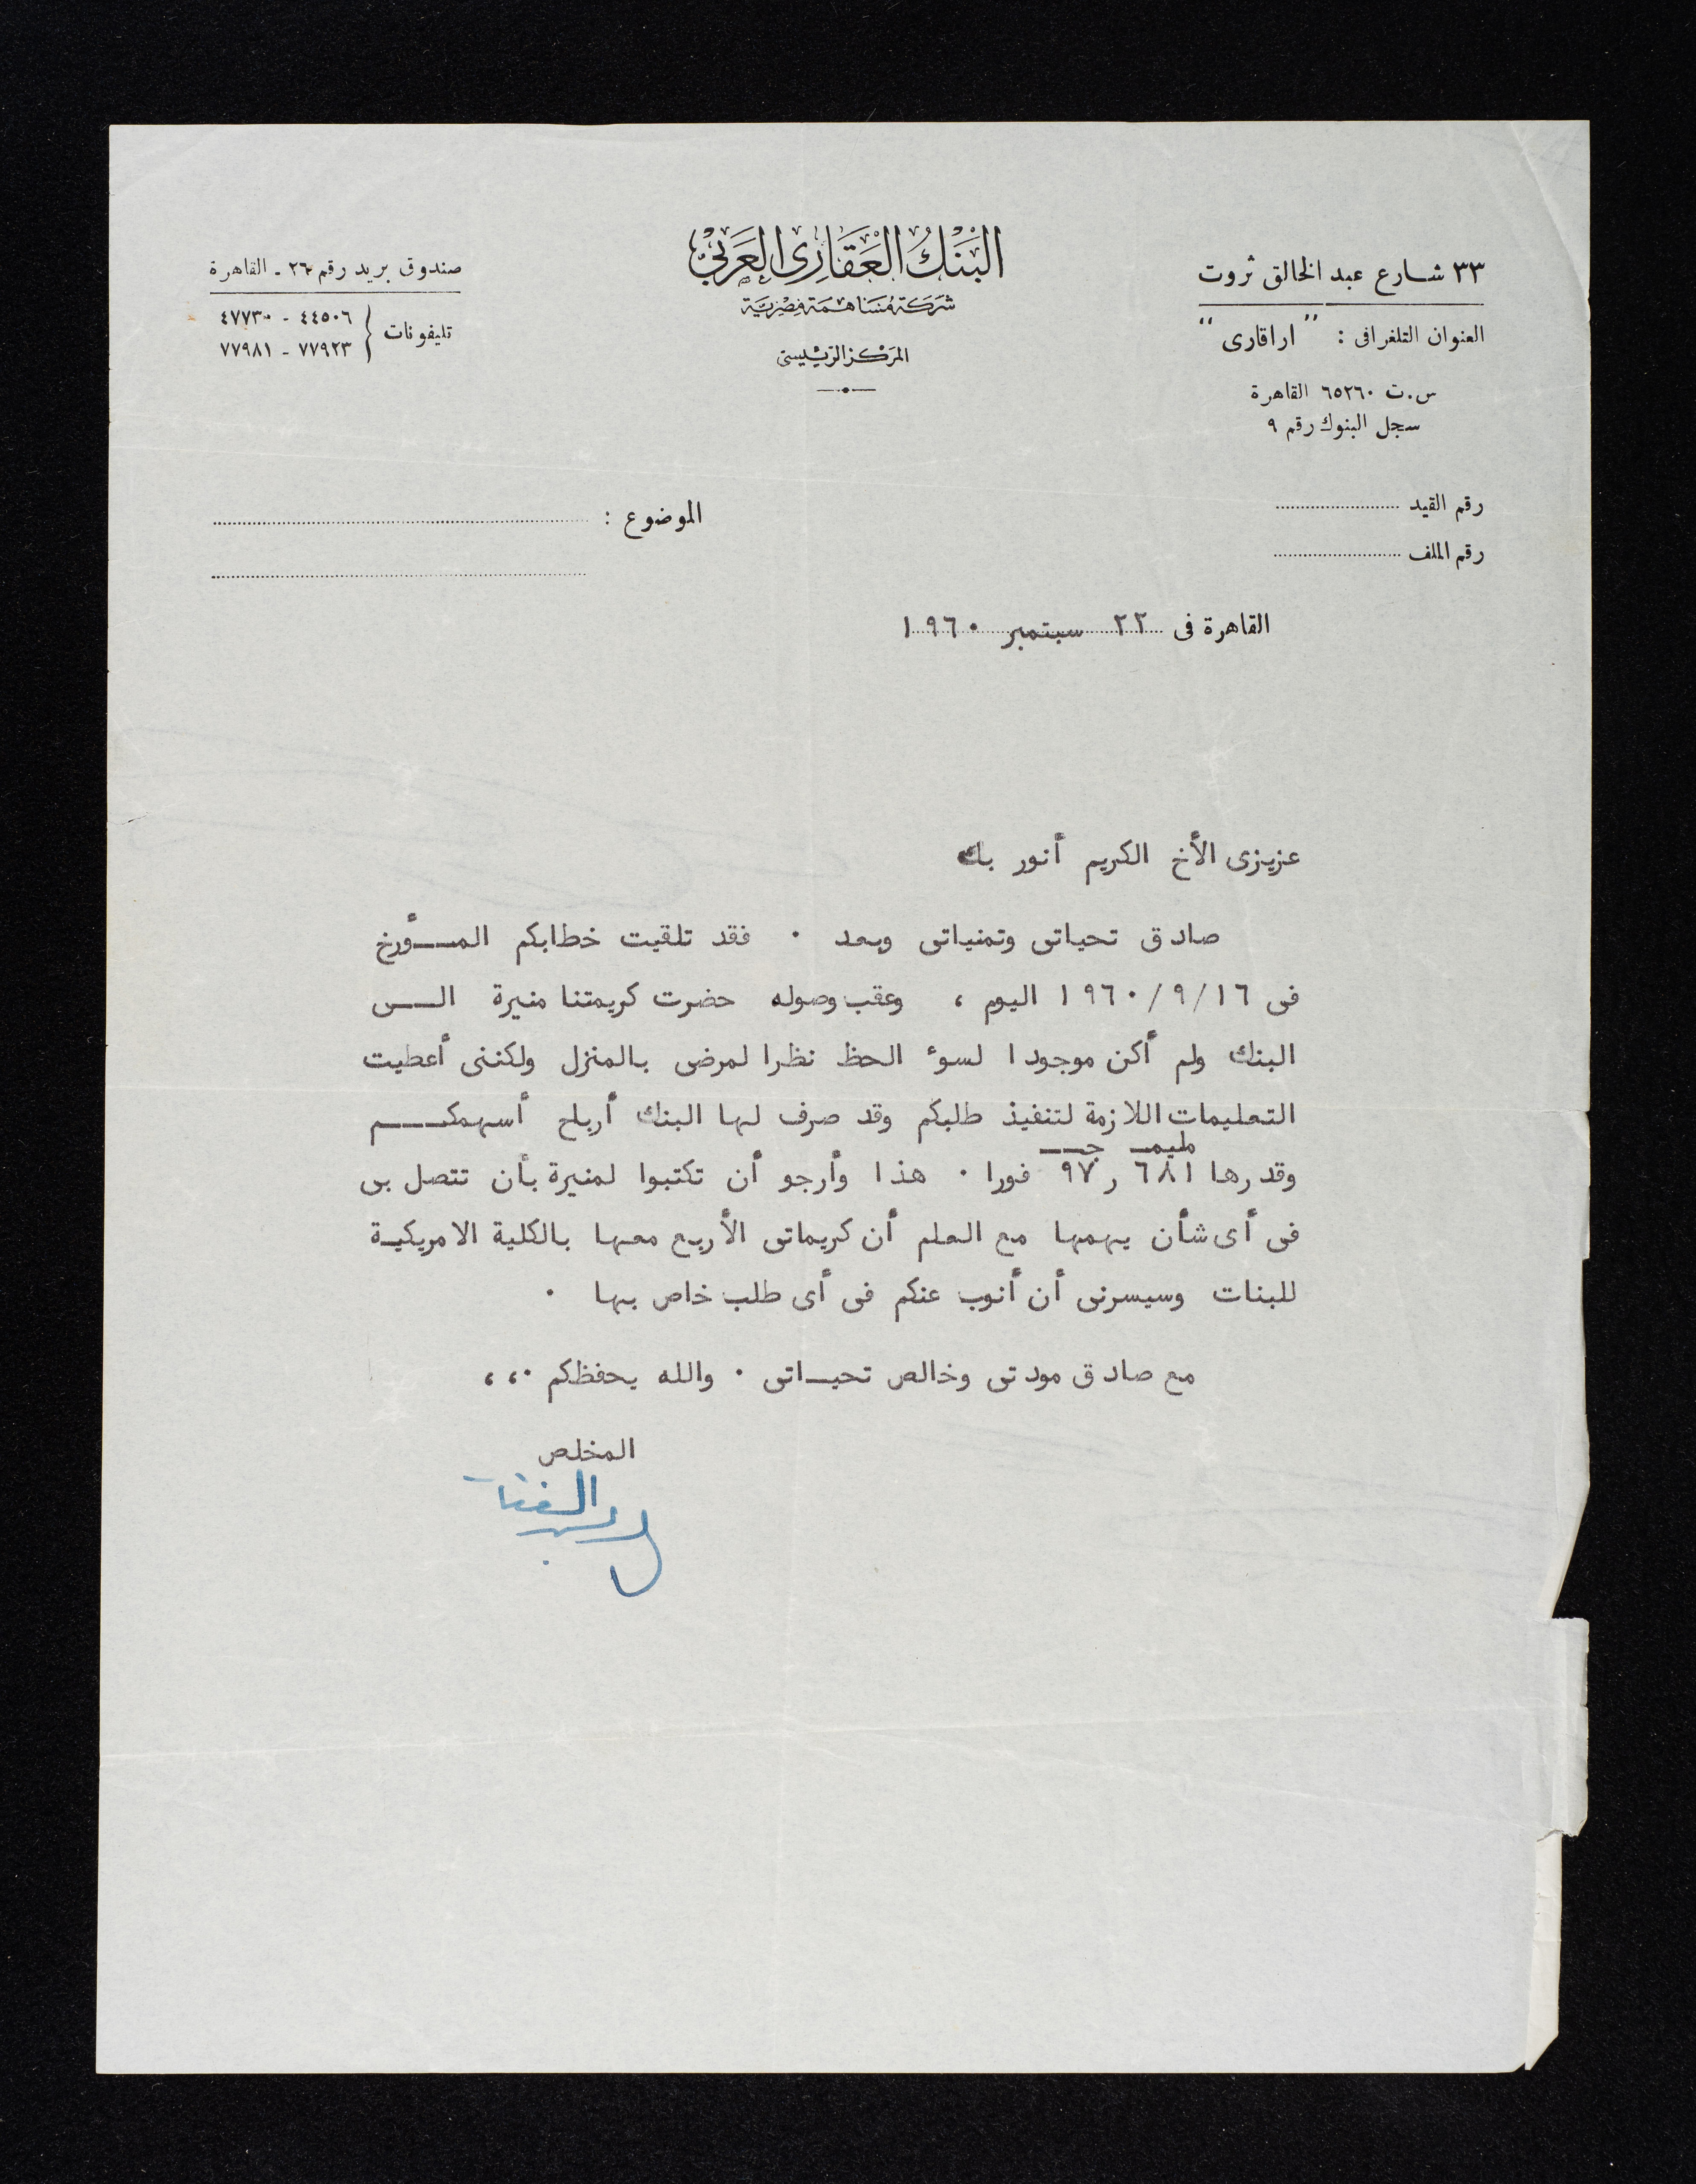 البنك العقارى العربى
شركة مساهمة مصرية
المركز الرئيسى
٣٣ شارع عبد الخالق ثروت
العنوان التلغرافى : " اراقارى "
س.ت ٦٥٢٦٠ القاهرة
سجل البنوك رقم ٩
صندوق بريد رقم ٢٦ - القاهرة
تليفونات { ٤٤٥٠٦ - ٤٧٧٣٠
٧٧٩٢٣ - ٧٧٩٨١
رقم القيد
رقم الملف
الموضوع :
القاهرة فى ٢٢ سبتمبر ١٩٦٠
عزيزى الأخ الكريم أنور بك
صادق تحياتى وتمنياتى وبعد . فقد تلقيت خطابكم المـــؤرخ
فى ١٩٦٠/٩/١٦ اليوم ، وعقب وصوله حضرت كريمتنا منيرة الـــى
البنك ولم أكن موجودا لسوء الحظ نظرا لمرضى بالمنزل ولكننى أعطيت
التعليمات اللازمة لتنفيذ طلبكم وقد صرف لها البنك أرباح أسهمكـــم
مليمـ جـــ
وقدرها ٦٨١ ر ٩٧ فورا . هذا وأرجو أن تكتبوا لمنيرة بأن تتصل بى
فى أى شأن يهمها مع العلم أن كريماتى الأربع معها بالكلية الامريكية
للبنات وسيسرنى أن أنوب عنكم فى أى طلب خاص بها .
مع صادق مودتى وخالص تحيـاتى . والله يحفظكم .، ،
المخلص